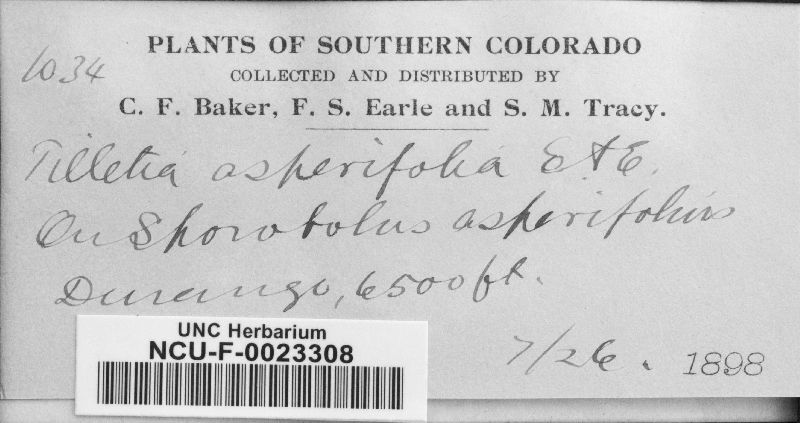 1034
PLANTS OF SOUTHERN COLORADO
COLLECTED AND DISTRIBUTED BY
C. F. Baker, F. S. Earle and S. M. Tracy.
Tilletia asperifolia E & E.
On Sporobolus asperifolius
Durango, 6500 ft.
7/26. 1898
UNC Herbarium
NCU-F-0023308